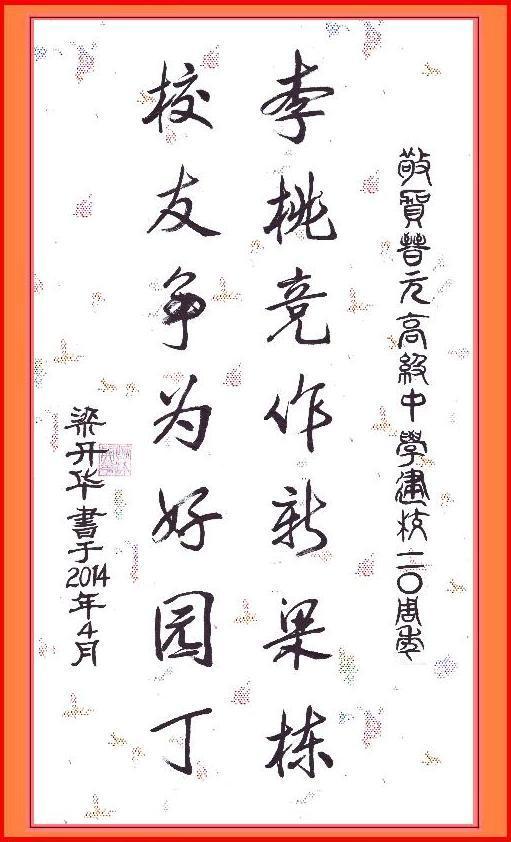 敬賀晉元高級中學建校一一〇周年
李桃竞作新梁栋
校友争为好园丁
梁开华書于2014年4月